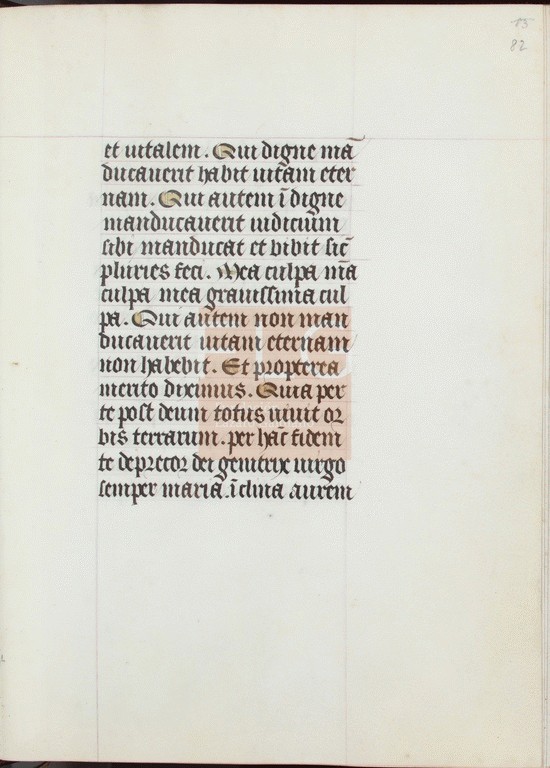 83
82
et uitalem. Qui digne mā
ducauerit habit uitam eter
nam. Qui autem īdigne
manducauerit iudicium
sibi manducat et bibit sic̄
pluries feci. Mea culpa mā
culpa mea grauissima cul
pa. Qui autem non man
ducauerit uitam eternam
non habebit. Et propterea
merito diximus. Quia per
te post deum totus uiuit or
bis terrarum. per hāc fidem
te deprecor dei genitrix uirgo
semper maria. īclina aurem